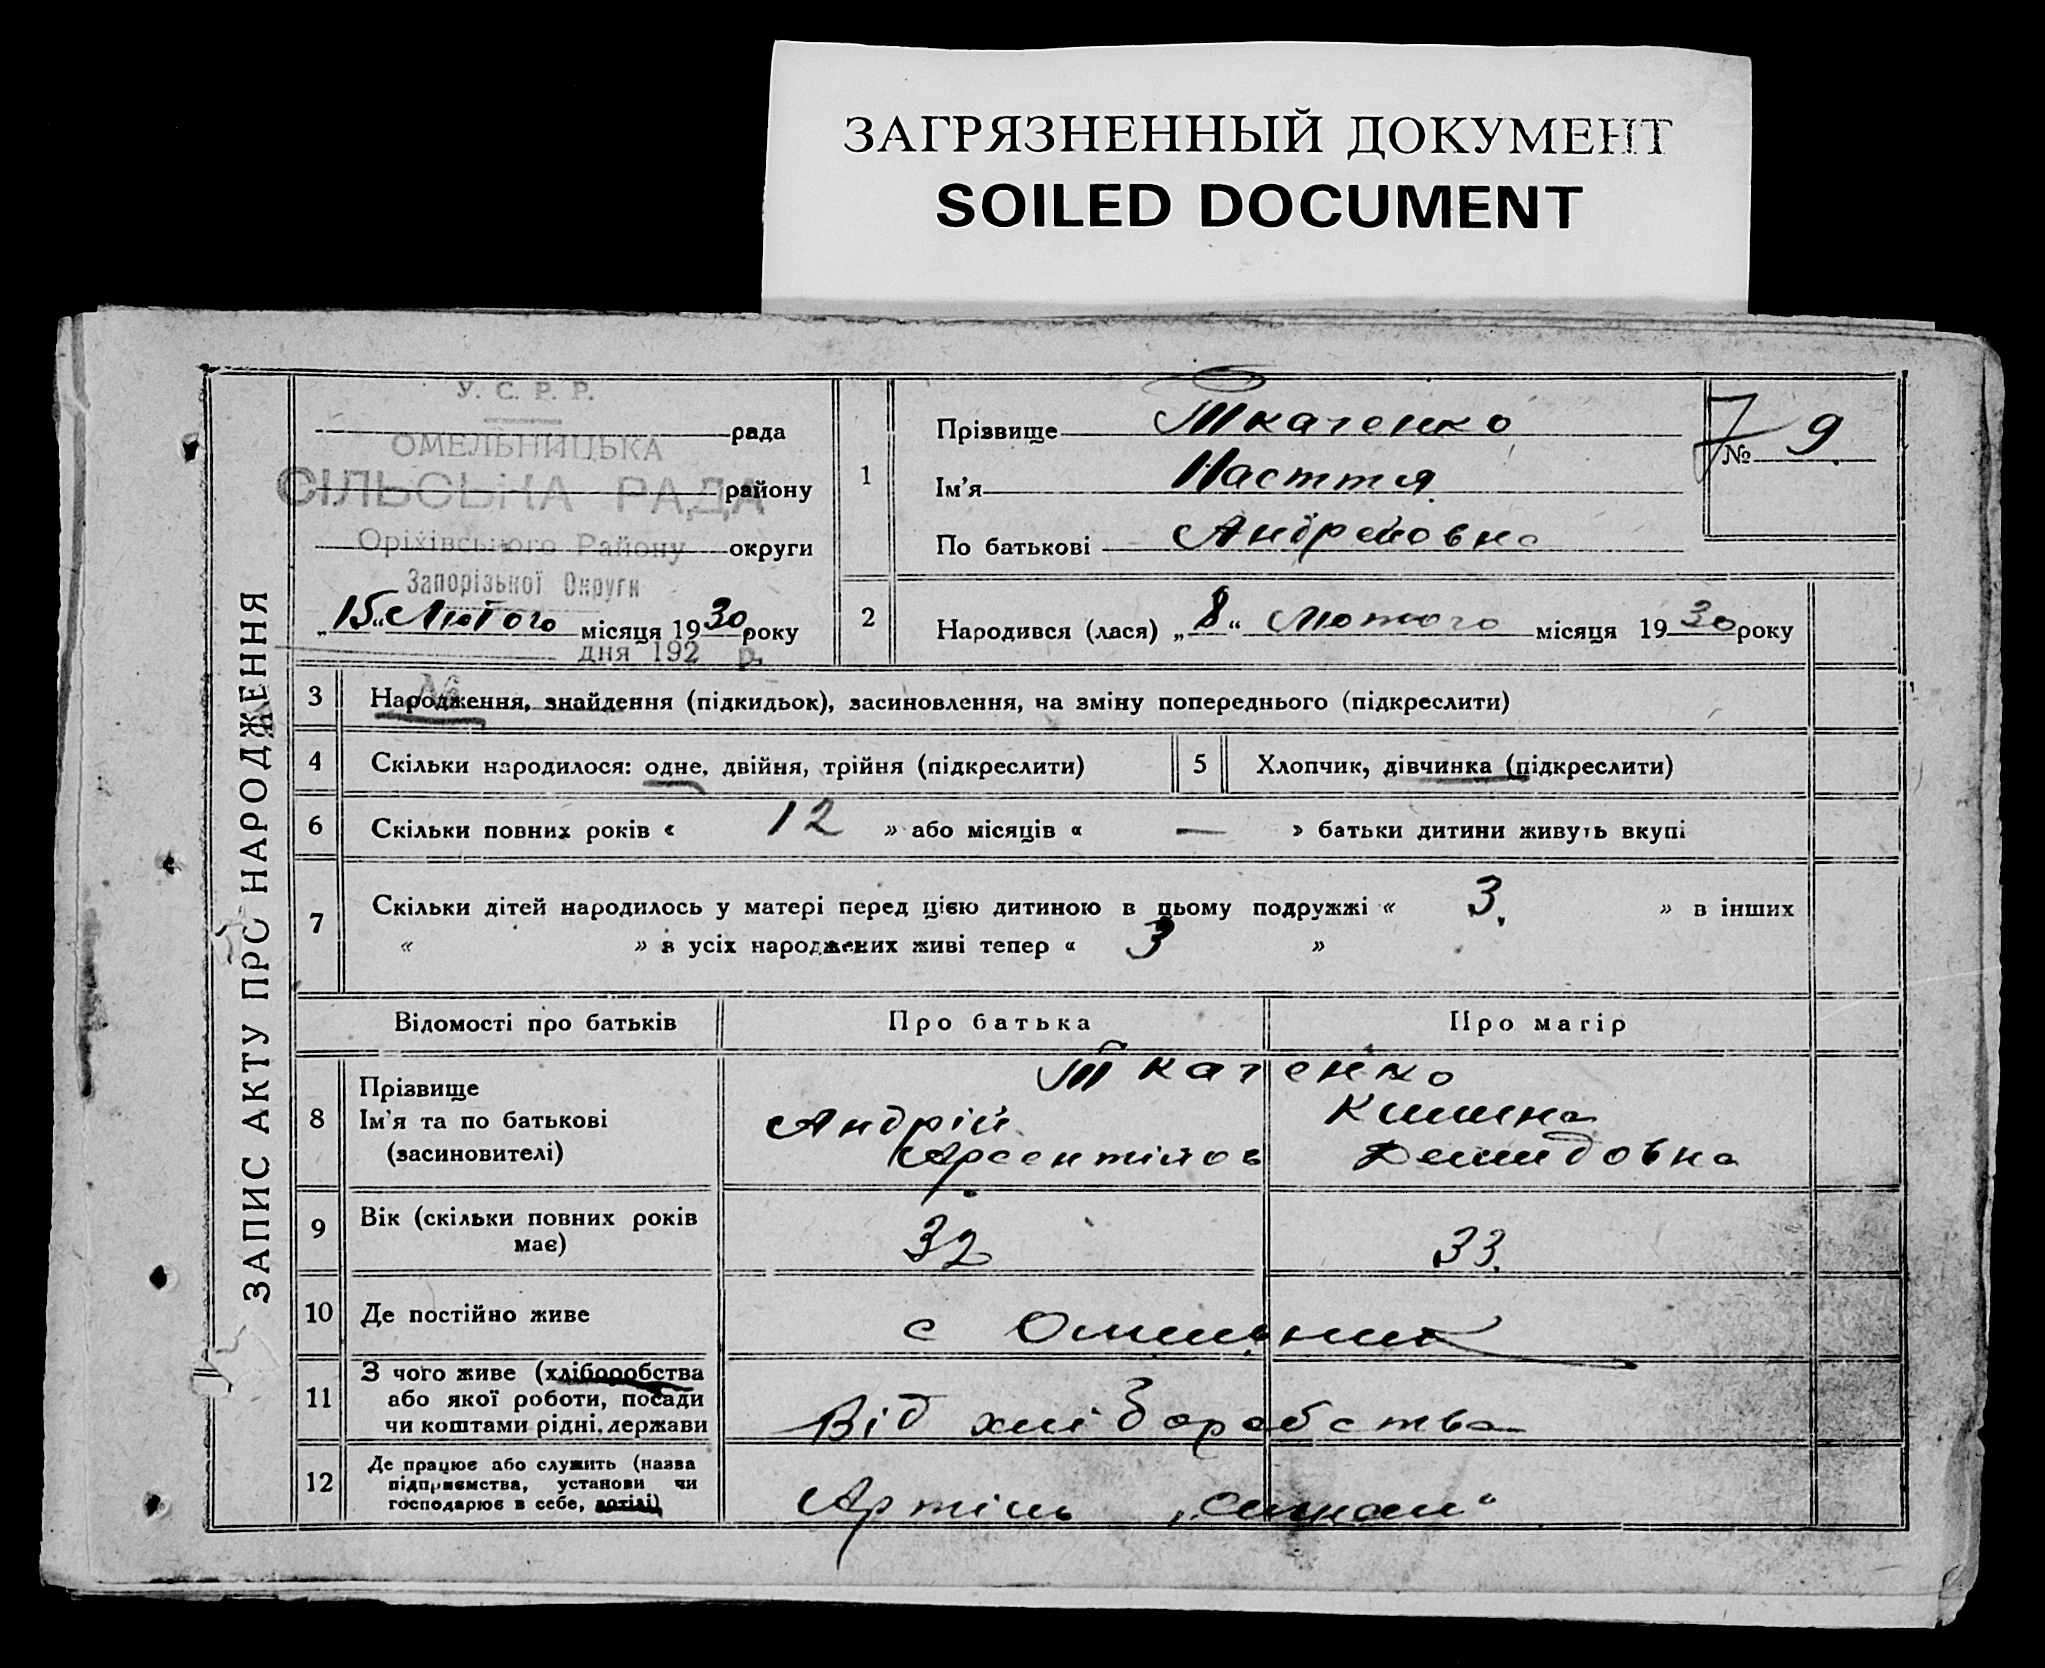 ЗАГРЯЗНЕННЫЙ ДОКУМЕНТ
SOILED DOCUMENT
ЗАПИС АКТУ ПРО НАРОДЖЕННЯ
У. С. Р. Р.
рада
ОМЕЛЬНИЦЬКА
СІЛЬСЬКА РАДА
району
Оріхівського Району
округи
Запорізької Округи
„15“ Лютого місяця 1930 року
дня 192 р.
1
Прізвище Ткаченко
Ім'я Настля
По батькові Андрейовна
№ 9
2
Народився (лася) „8“ Лютого місяця 1930 року
3 Народження, знайдення (підкидьок), засиновлення, на зміну попереднього (підкреслити)
4 Скільки народилося: одне, двійня, трійня (підкреслити)
5 Хлопчик, дівчинка (підкреслити)
6 Скільки повних років « 12 » або місяців « — » батьки дитини живуть вкупі
7 Скільки дітей народилось у матері перед цією дитиною в цьому подружжі « 3. » в інших
« » в усіх народжених живі тепер « 3 »
Відомості про батьків Про батька Про матір
8 Прізвище Ткаченко
Ім'я та по батькові Андрій
(засиновителі) Арсентійов Демидовна
9 Вік (скільки повних років має) 32 33.
10 Де постійно живе с Омельник
11 З чого живе (хліборобства
або якої роботи, посади
чи коштами рідні, держави Від хліборобства
12 Де працює або служить (назва
підприємства, установи чи
господарює в себе, артілі) Артіль